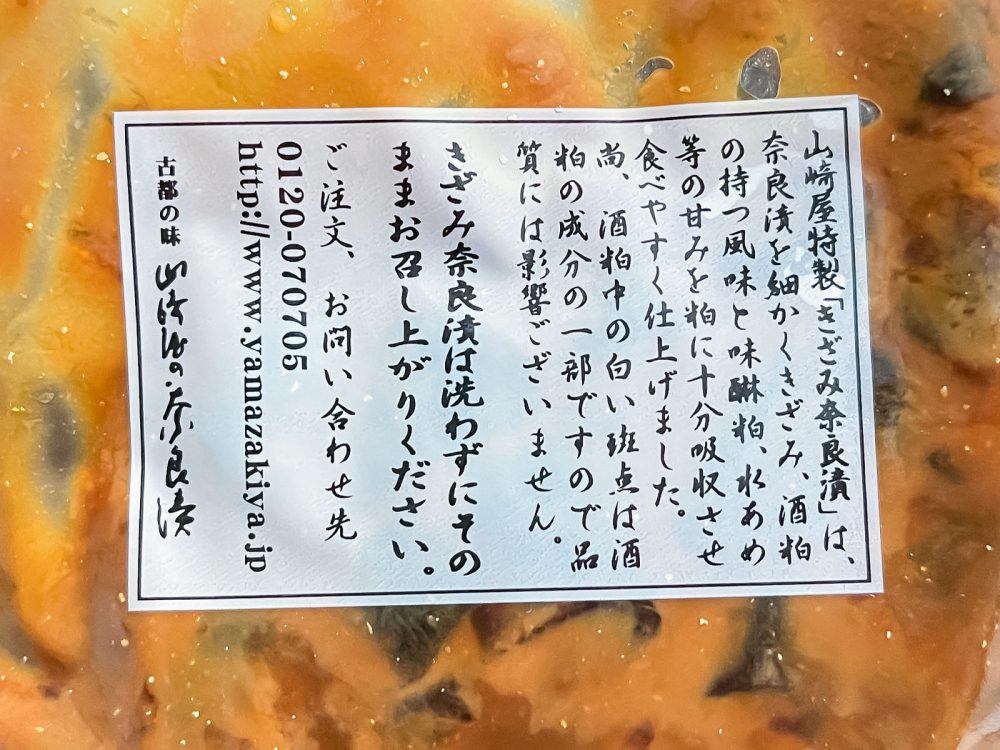 山﨑屋特製「きざみ奈良漬」は、
奈良漬を細かくきざみ、酒粕
の持つ風味と味醂粕、水あめ
等の甘みを粕に十分吸収させ
食べやすく仕上げました。
尚、酒粕中の白い斑点は酒
粕の成分の一部ですので品
質には影響ございません。
きざみ奈良漬は洗わずにその
ままお召し上がりください。
ご注文、お問い合わせ先
0120-070705
http://www.yamazakiya.jp
古都の味 山﨑屋の奈良漬